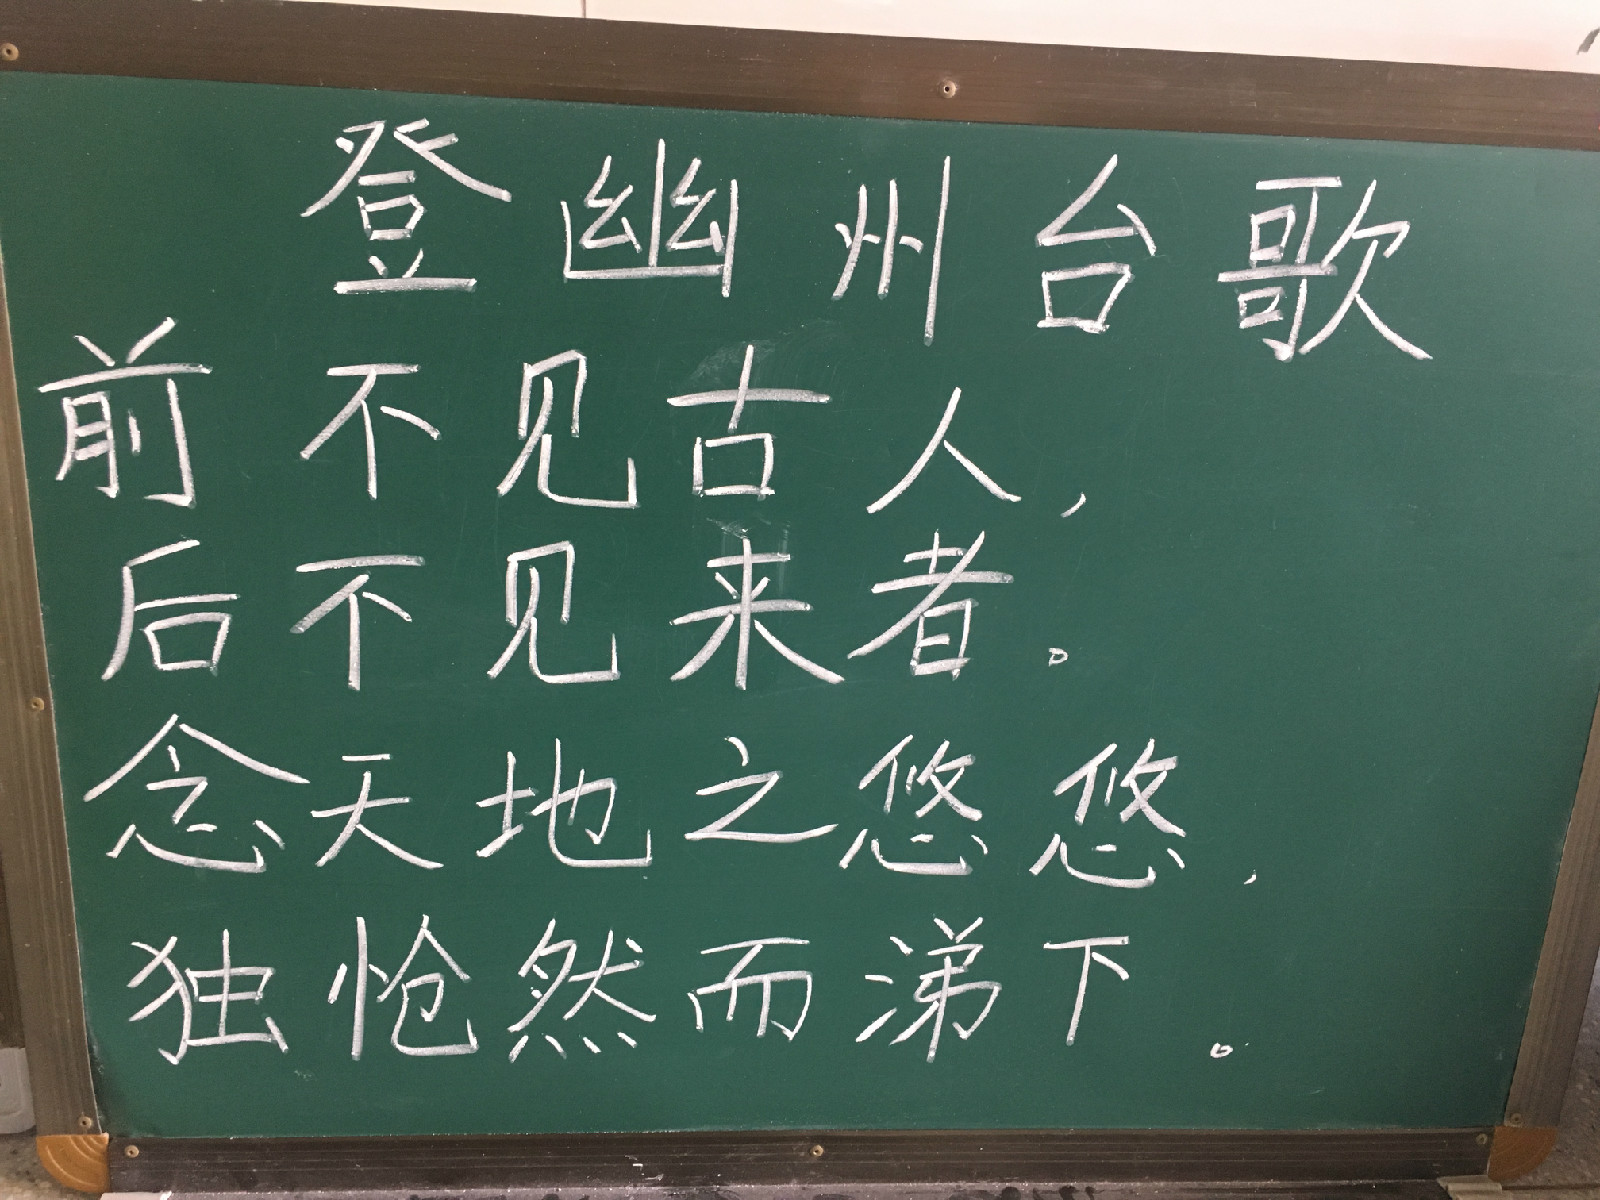 登幽州台歌
前不见古人,
后不见来者。
念天地之悠悠,
独怆然而涕下。